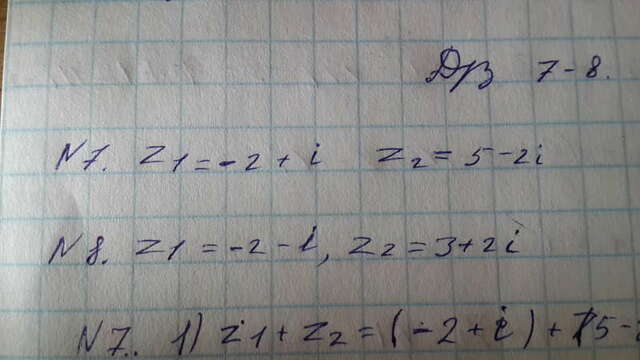 Др 7-8.
N7. z1 = -2 + i z2 = 5 - 2i
N8. z1 = -2 - i, z2 = 3 + 2i
N7. 1) z1 + z2 = (-2 + i) + (5 -